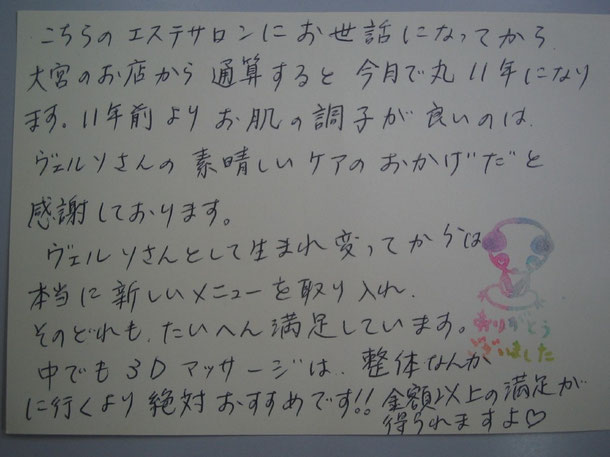 こちらのエステサロンにお世話になってから、
大宮のお店から通算すると今月で丸11年になり
ます。11年前よりお肌の調子が良いのは、
ヴェルソさんの素晴しいケアのおかげだと
感謝しております。
ヴェルソさんとして生まれ変ってからは
本当に新しいメニューを取り入れ、
そのどれも、たいへん満足しています。
中でも3Dマッサージは、整体なんか
に行くより絶対おすすめです!!金額以上の満足が
得られますよ♡
ありがとう
ございました